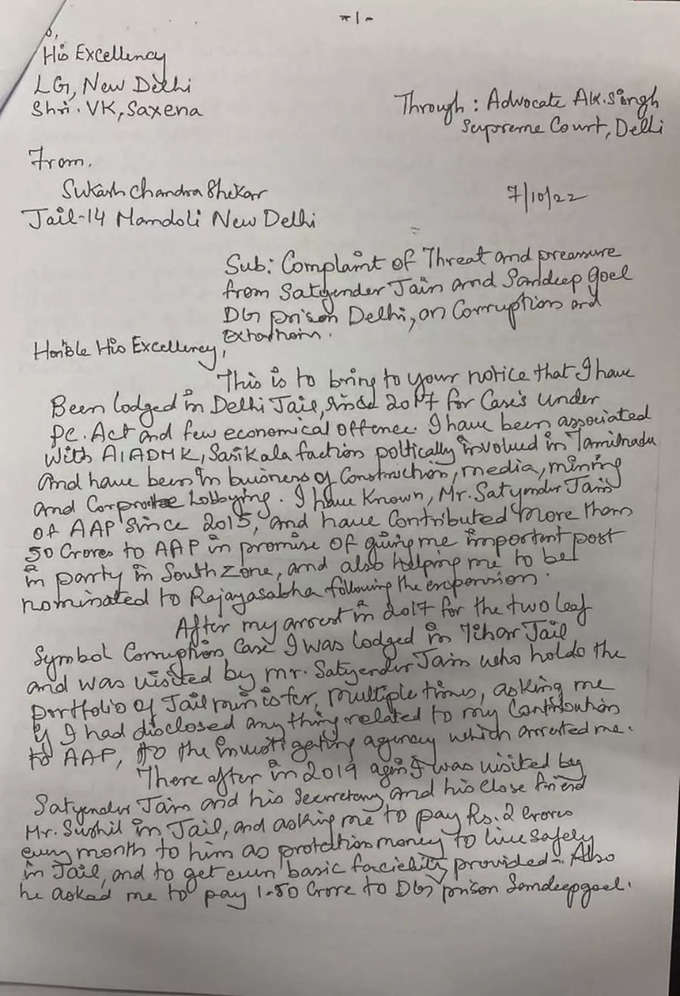 -1-
o,
His Excellency
LG, New Delhi
Shri. VK, Saxena
Through: Advocate AK. Singh
Supreme Court, Delhi
From,
Sukash Chandra Shekar
Jail-14 Mandoli New Delhi
7/10/22
Sub: Complaint of Threat and preassure
from Satyender Jain and Sandeep Goel
DG prison Delhi, on Corruption and
Extortion.
Hon'ble His Excellency,
This is to bring to your notice that I have
Been lodged in Delhi Jail, since 2017 for Case's under
PC. Act and few economical offence. I have been associated
with AIADMK, Sasikala faction politically involved in Tamilnadu
and have been in business of Construction, media, mining
and Corporate Lobbying. I have Known, Mr. Satyendar Jain
of AAP since 2015, and have Contributed more than
50 Crores to AAP in promise of giving me important post
in party in South Zone, and also helping me to be
nominated to Rajayasabha following the expansion.
After my arrest in 2017 for the two leaf
Symbol Corruption Case I was lodged in Tihar Jail
and was visited by mr. Satyender Jain who holds the
portfolio of Jail minister, multiple times, asking me
if I had disclosed anything related to my Contribution
to AAP, to the investigating agency which arrested me.
There after in 2019 again I was visited by
Satyender Jain and his Secretary, and his close friend
Mr. Sushil in Jail, and asking me to pay Rs. 2 Crores
every month to him as protection money to live safely
in Jail, and to get even basic facielity provided. Also
he asked me to pay 1.50 Crore to DG prison Sandeep goel.